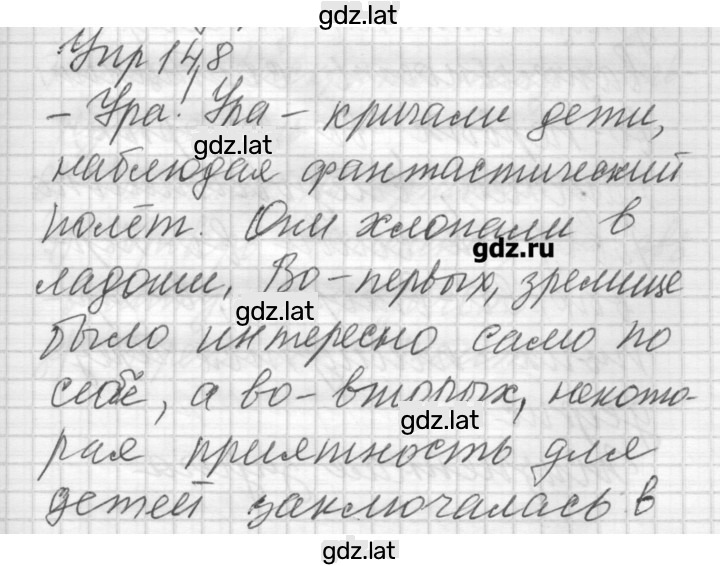 gdz.lat
Упр 148
- Ура! Ура - кричали дети,
gdz.lat
наблюдая фантастический
полёт. Они хлопали в
gdz.ru
ладоши, Во-первых, зрелище
gdz.lat
было интересно само по
себе, а во-вторых, некото-
gdz.lat
рая приятность для
детей заключалась в
gdz.lat